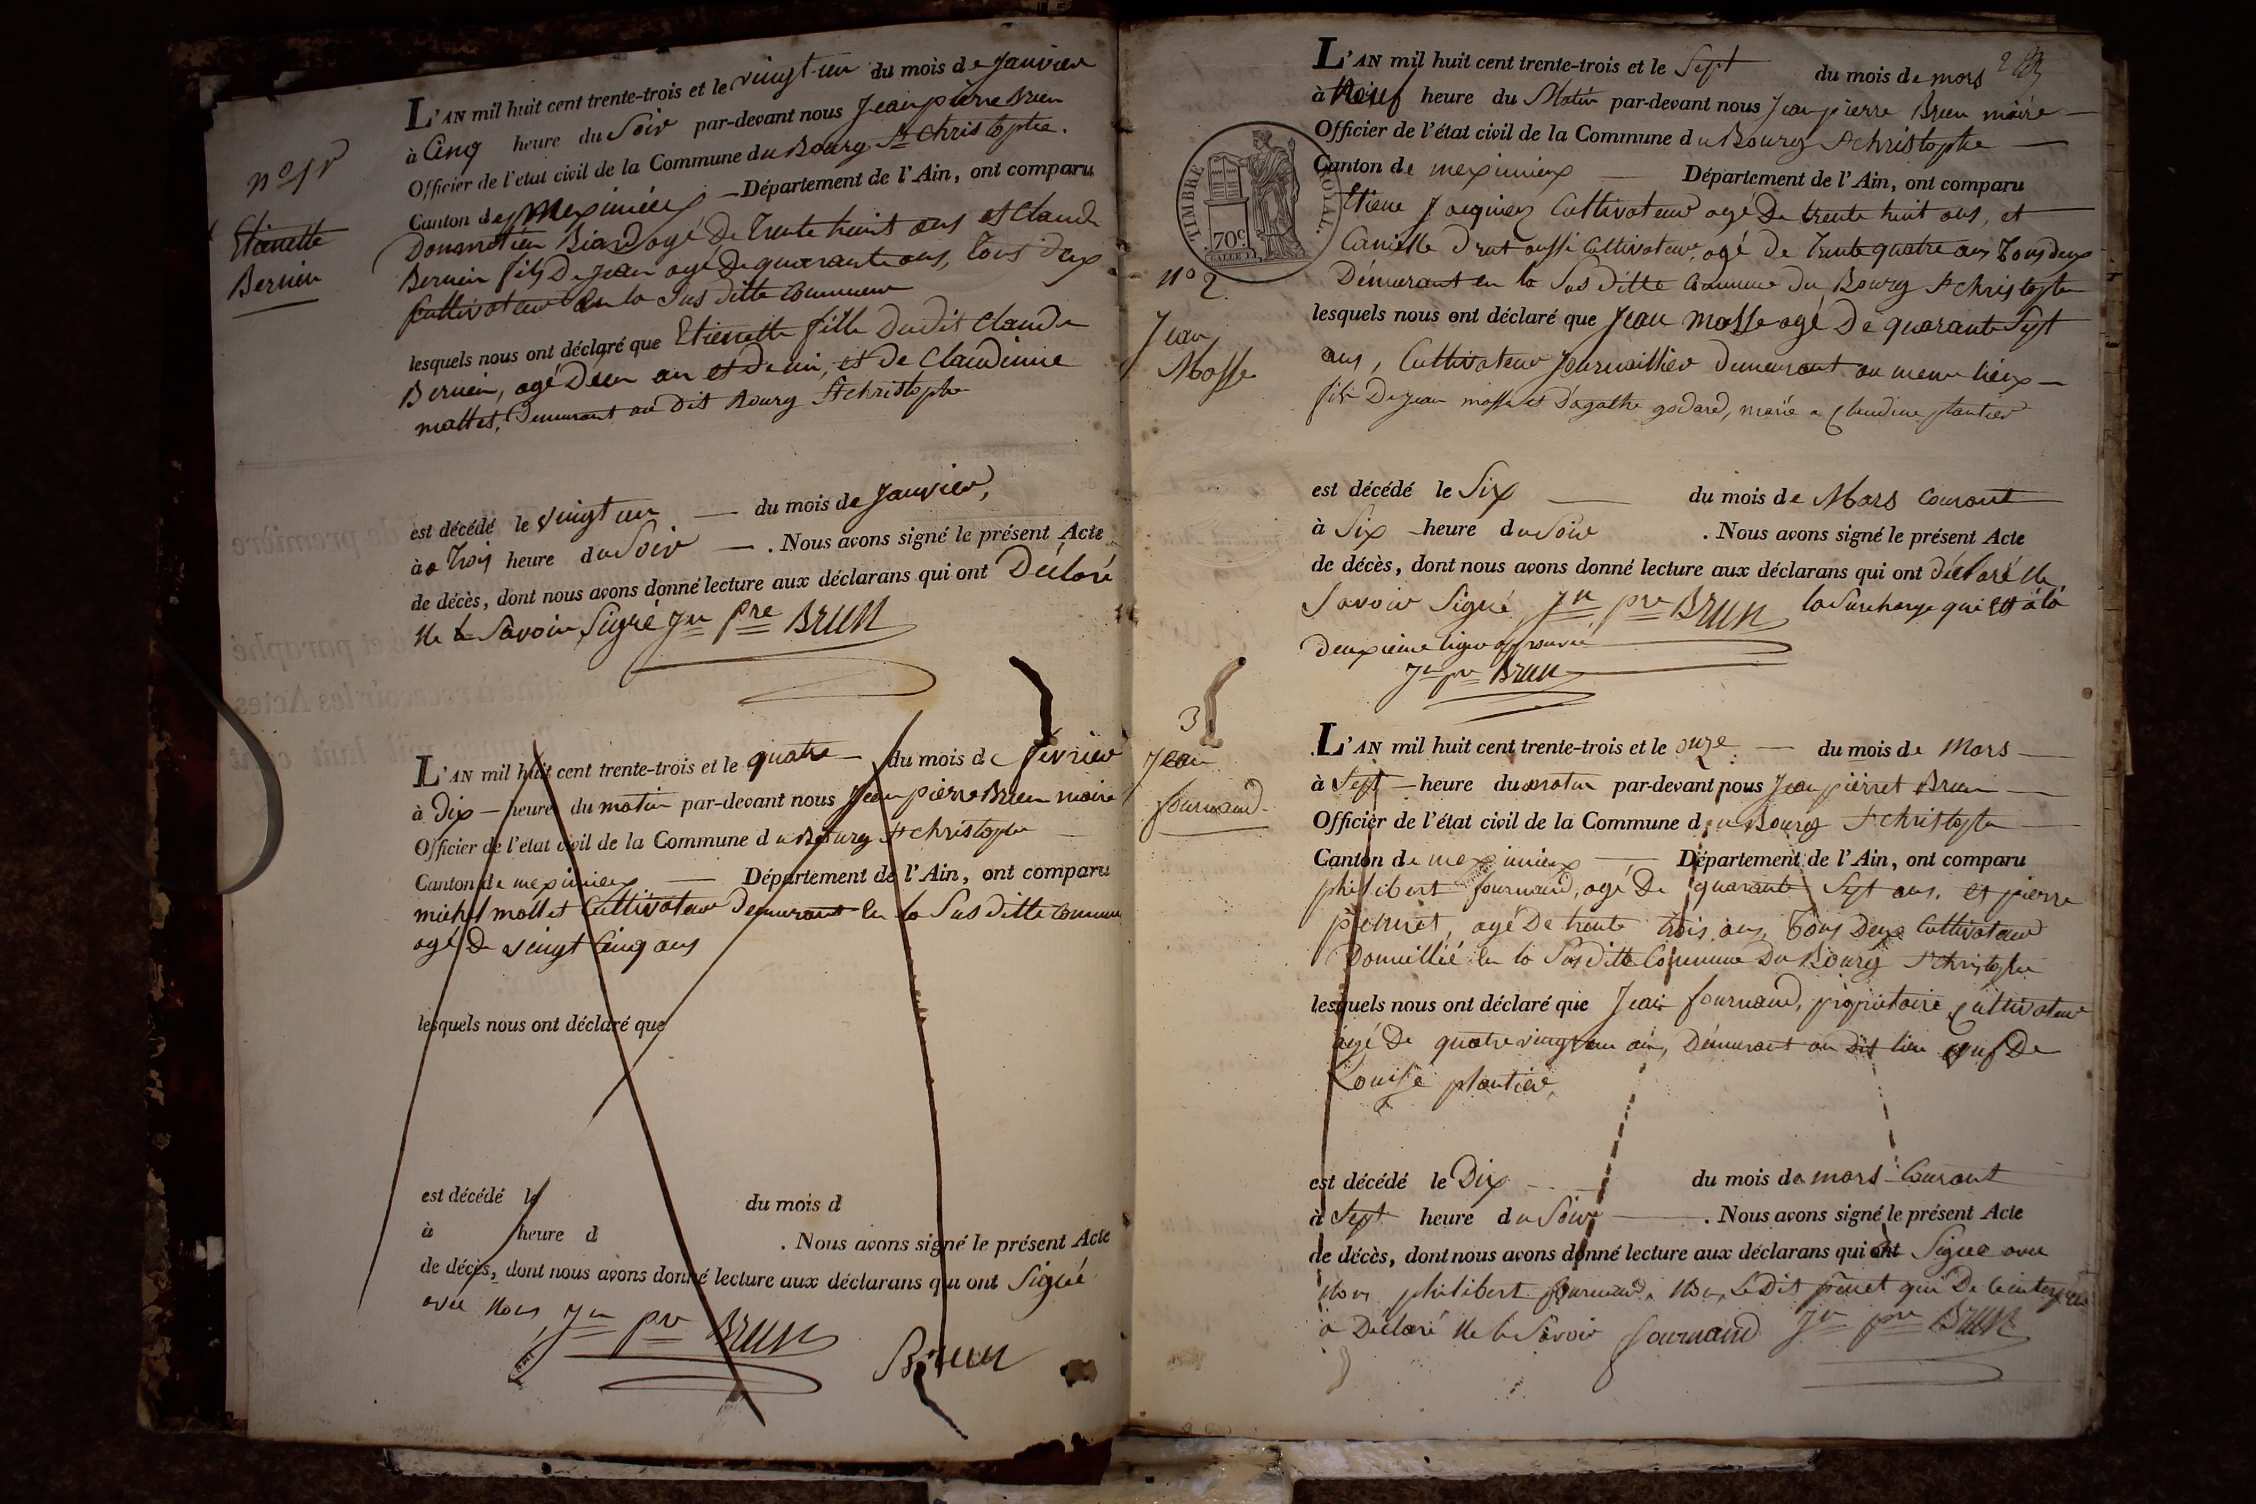 n° 1r
Etienette
Bernin
L'AN mil huit cent trente-trois et le vingt un du mois de janvier
à Cinq heure du Soir par-devant nous Jean pierre Brun
Officier de l'état civil de la Commune du Bourg St Christophe.
Canton de Meximieux — Département de l'Ain, ont comparu
Biard agé De trente huit ans et Claude
Bernin fils De jean agé De quarante ans, tous deux
Cultivateur en la Sus ditte Commune
lesquels nous ont déclaré que Etienette fille Du dit Claude
Bernin, agé Déun an et Demi, et de Claudinne
mottet, Demurant au Dit Bourg St christophe
est décédé le vingt un — du mois de janvier,
à trois heure du Soir — . Nous avons signé le présent Acte
de décès, dont nous avons donné lecture aux déclarans qui ont Déclaré
Ne le Savoir, Signé Jn pre BRUN
L'AN mil huit cent trente-trois et le quatre — du mois de février
à Dix — heure du matin par-devant nous Jean pierre Brun maire
Officier de l'état civil de la Commune du Bourg St christophe
Canton de meximieux — Département de l'Ain, ont comparu
michel mollet Cultivateur Demurant en la Sus ditte Commune
agé De vingt Cinq ans
lesquels nous ont déclaré que
est décédé le du mois d
à heure d . Nous avons signé le présent Acte
de décès, dont nous avons donné lecture aux déclarans qui ont Signé
avec Nous Jn pre BRUN
Brun
2
L'AN mil huit cent trente-trois et le Sept du mois de mars
à Neuf heure du Matin par-devant nous Jean pierre Brun maire —
Officier de l'état civil de la Commune du Bourg St christophe —
TIMBRE ROYAL.
70c.
Canton de meximieux — Département de l'Ain, ont comparu
Etiene Jacquier Cultivateur agé De trente huit ans, et
Camille Drut aussi Cultivateur, agé de trente quatre ans tous deux
Démurant en la Sus ditte Commune du Bourg St christophe
n° 2.
Jean
Mosse
lesquels nous ont déclaré que Jean Mosse agé De quarante Sept
ans, Cultivateur journaillier demurant au meme lieux —
fils De jean mosse et d'agathe godard, marié a claudine plantier
est décédé le Six — du mois de Mars Courant
à Six — heure du Soir . Nous avons signé le présent Acte
de décès, dont nous avons donné lecture aux déclarans qui ont déclaré Ne
Savoir Signé Jn pre BRUN la Surcharge qui est à la
deuxieme ligne approuvé
Jn pre BRUN
3
Jean
fournand
L'AN mil huit cent trente-trois et le onze — du mois de Mars —
à Sept — heure du matin par-devant nous Jean pierret Brun —
Officier de l'état civil de la Commune du Bourg St christophe —
Canton de meximieux — Département de l'Ain, ont comparu
philibert fournand, agé De quarante Sept ans, et pierre
agé De trente trois ans, tous Deux Cultivateur
Domicillié en la Sus ditte Commune Du Bourg St christophe
lesquels nous ont déclaré que Jean fournand, propriétaire Cultivateur
agé De quatre vingt un an, Démurant au dit lieu veuf De
Louise plantier,
est décédé le Dix — du mois de mars Courant
à Sept heure du Soir — . Nous avons signé le présent Acte
de décès, dont nous avons donné lecture aux déclarans qui ont Signé avec
Nous philibert fournand, Non Le Dit qui De
a Déclaré Ne le Savoir fournand Jn pre BRUN